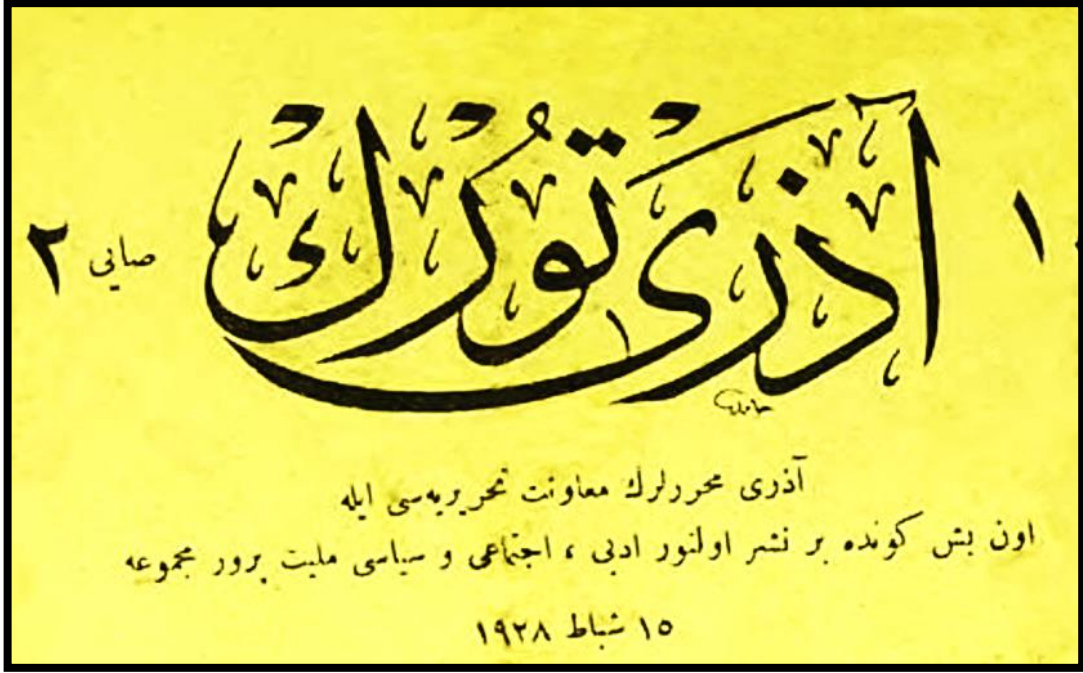 آذرى تورك
١
صايى ٢
آذرى محررلرك معاونت تحريريه‌سى ايله
اون بش كونده بر نشر اولنور ادبى ، اجتماعى و سياسى مليت پرور مجموعه
١٥ شباط ١٩٢٨